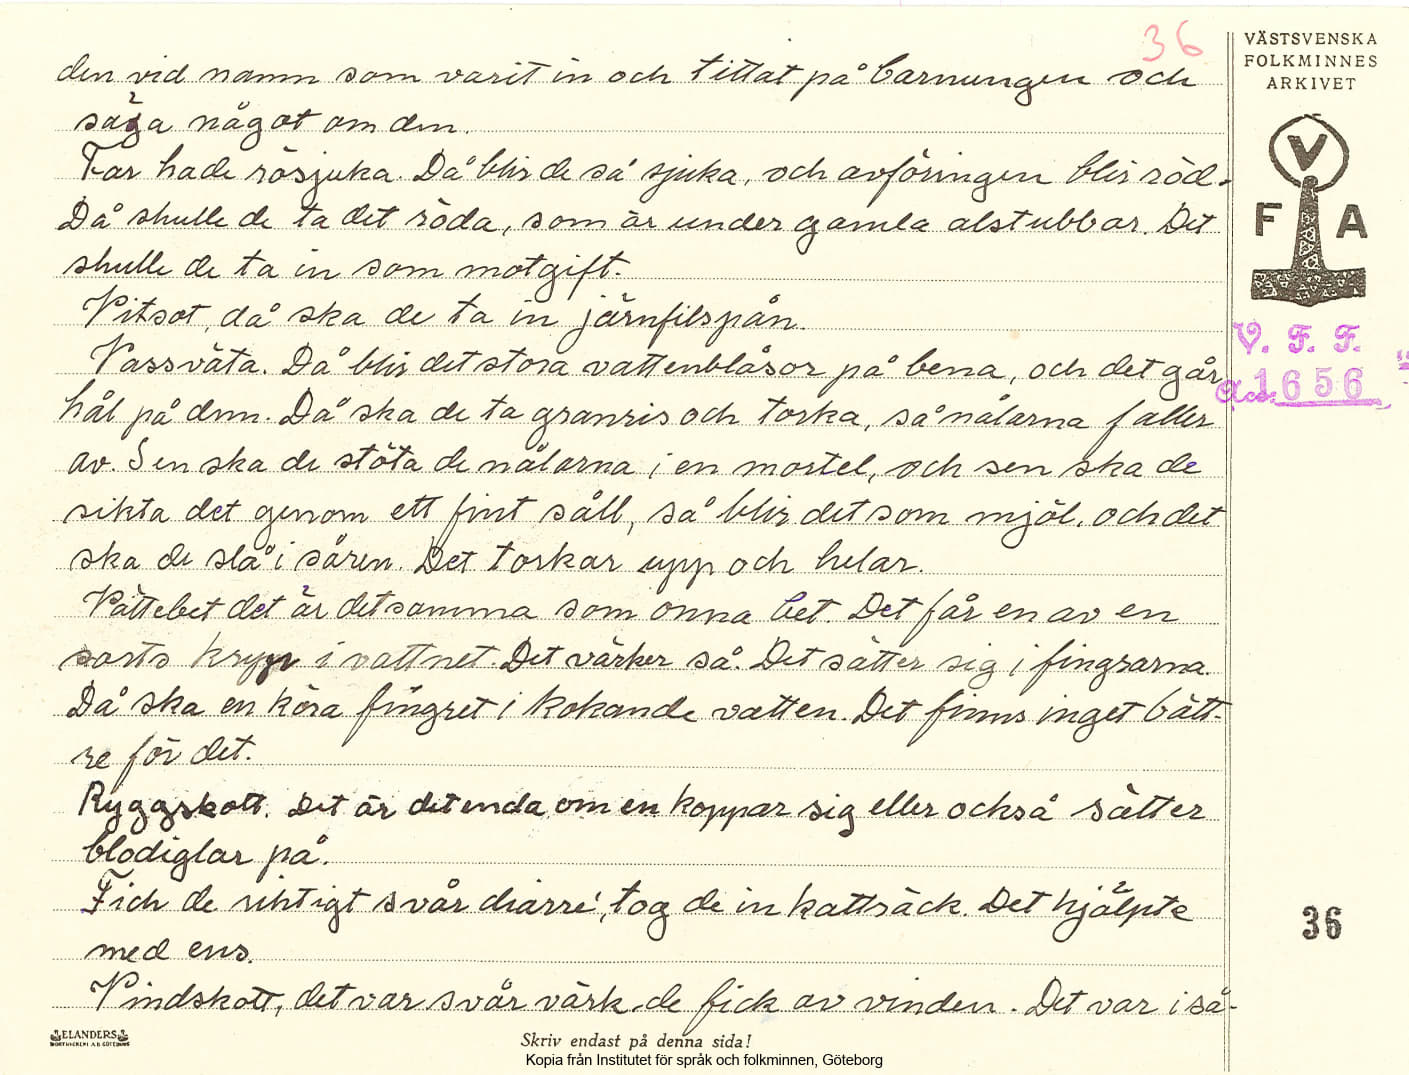 36
VÄSTSVENSKA
FOLKMINNES
ARKIVET
V
F A
V. F. F.
Acc. 1656
den vid namn som varit in och tittat på barnungen och
säga något om den.
Far hade rösjuka. Då blir de så sjuka, och avföringen blir röd.
Då skulle de ta det röda, som är under gamla alstubbar. Det
skulle de ta in som motgift.
Vitsot, då ska de ta in järnfilspån.
Vassväta. Då blir det stora vattenblåsor på bena, och det går
hål på dem. Då ska de ta granris och torka, så nålarna faller
av. Sen ska de stöta de nålarna i en mortel, och sen ska de
sikta det genom ett fint såll, så blir det som mjöl, och det
ska de slå i såren. Det torkar upp och helar.
Vättebet det är detsamma som onna bet. Det får en av en
sorts kryp i vattnet. Det värker så. Det sätter sig i fingrarna.
Då ska en köra fingret i kokande vatten. Det finns inget bätt-
re för det.
Ryggskott. Det är det enda om en koppar sig eller också sätter
blodiglar på.
Fick de riktigt svår diarré, tog de in kattsäck. Det hjälpte
med ens.
Vindskott, det var svår värk de fick av vinden. Det var i så-
36
ELANDERS
BOKTRYCKERI A.B. GÖTEBORG
Skriv endast på denna sida!
Kopia från Institutet för språk och folkminnen, Göteborg